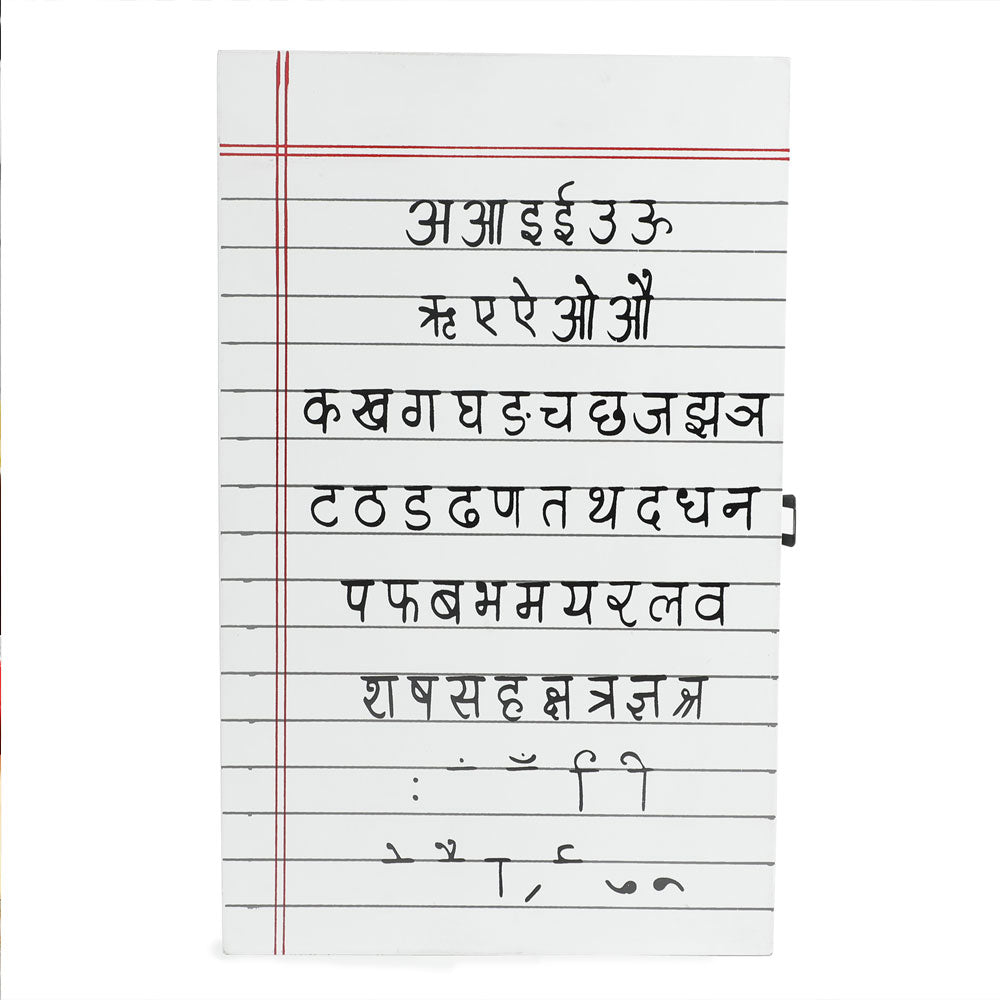 अ आ इ ई उ ऊ
ऋ ए ऐ ओ औ
क ख ग घ ङ च छ ज झ ञ
ट ठ ड ढ ण त थ द ध न
प फ ब भ म य र ल व
श ष स ह क्ष त्र ज्ञ श्र
ः ं ँ ि ी
े ै ा ्र र् ु ू